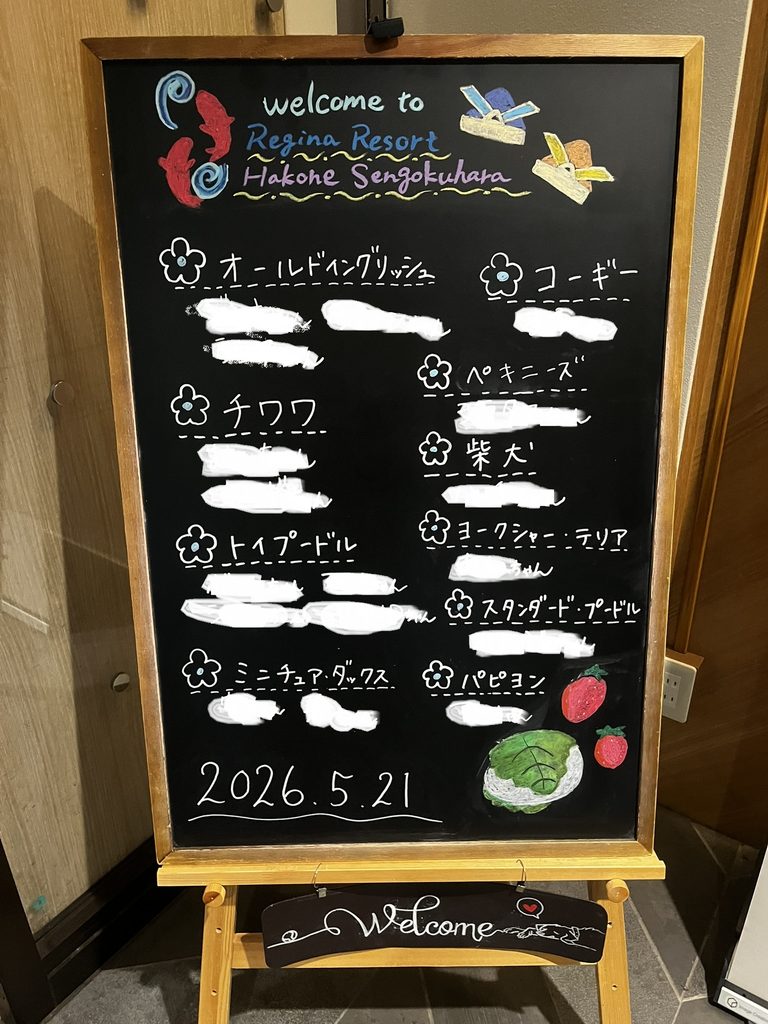 welcome to
Regina Resort
Hakone Sengokuhara
オールドイングリッシュ
チワワ
トイプードル
ミニチュア・ダックス
コーギー
ペキニーズ
柴犬
ヨークシャー・テリア
ちゃん
スタンダード・プードル
パピヨン
2026.5.21
Welcome